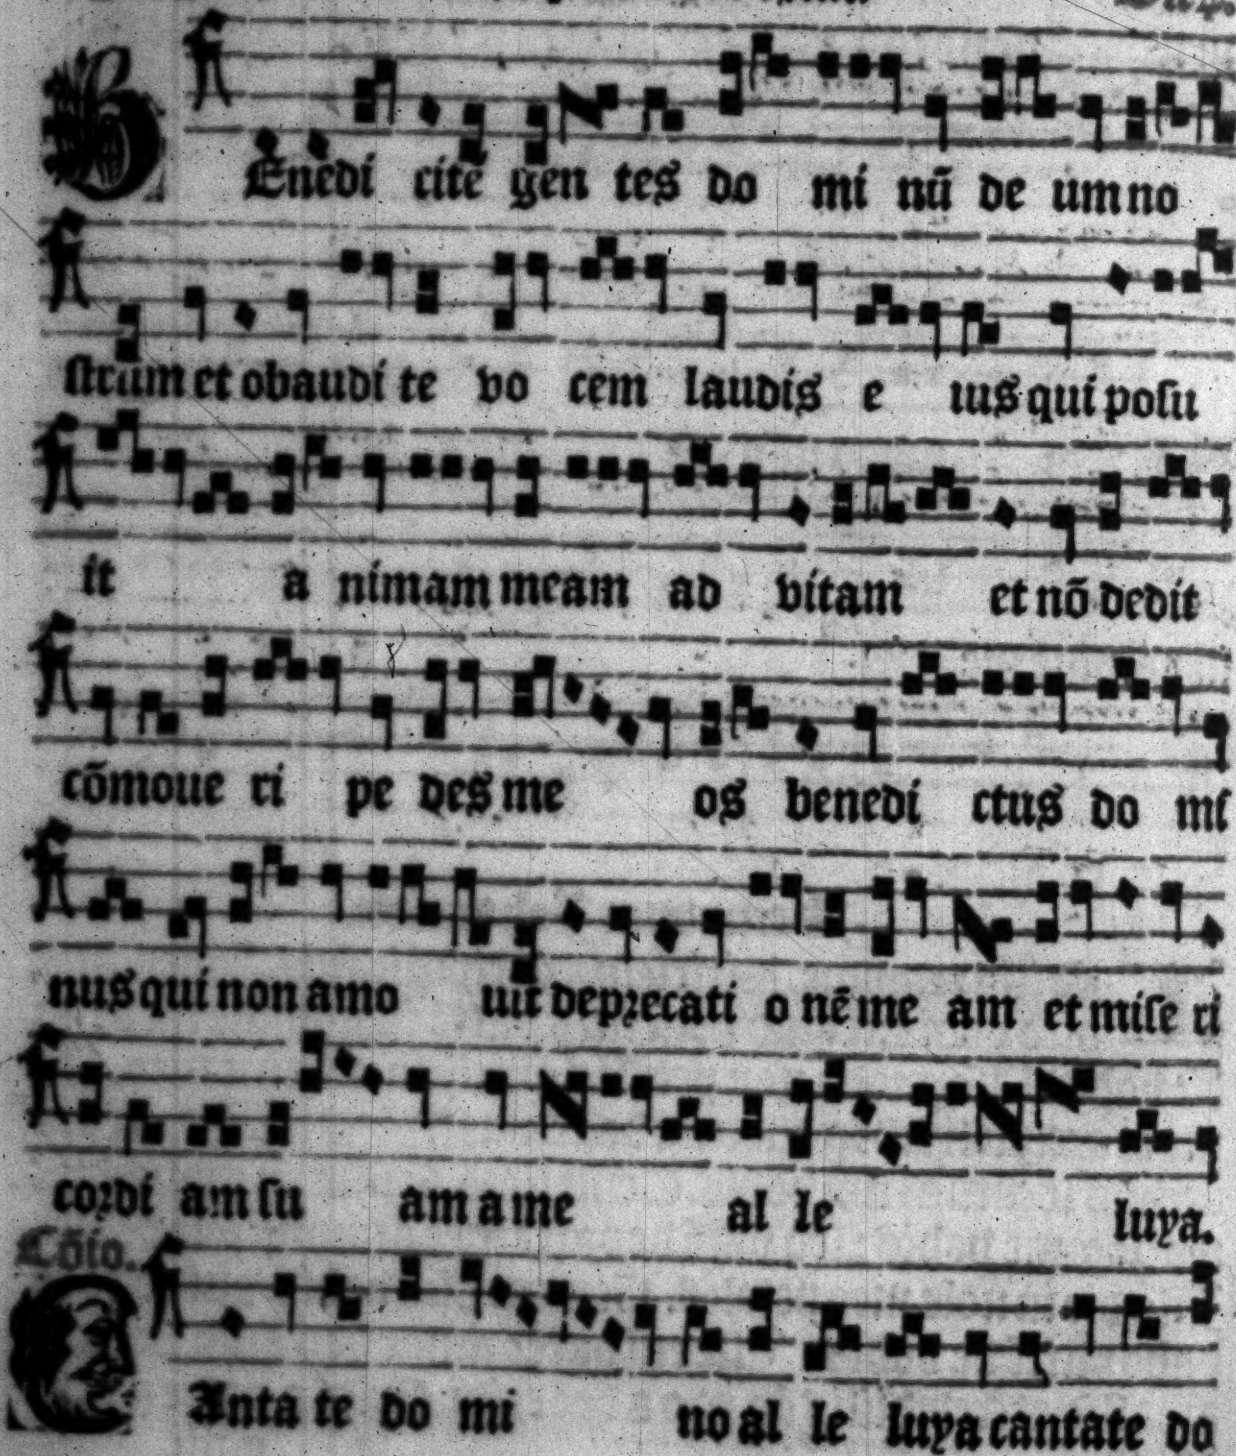 BEnedi cite gen tes do mi nū de um no
strum et obaudi te vo cem laudis e ius qui posu
it a nimam meam ad vitam et nō dedit
cōmoue ri pe des me os benedi ctus do mi
nus qui non amo uit deprecati o nē me am et mise ri
cordi am su am a me al le luya.
Cōio.
CAnta te do mi no al le luya cantate do